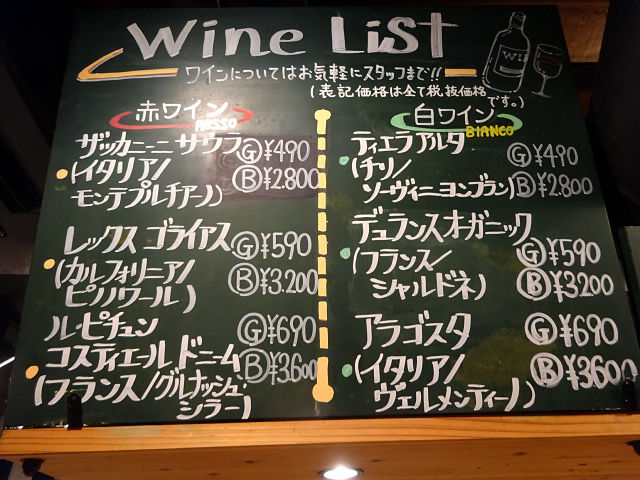 Wine List
ワインについてはお気軽にスタッフまで!!
(表記価格は全て税抜価格
です。)
赤ワイン
ROSSO
ザッカニーニ サウラ Ⓖ¥490
(イタリア/ Ⓑ¥2.800
モンテプルチアーノ)
レックス ゴライアス Ⓖ¥590
(カルフォリーニア/ Ⓑ¥3.200
ピノノワール)
ル・ピチュン Ⓖ¥690
コスティエール ドニーム Ⓑ¥3.600
(フランス/グルナッシュ・
シラー)
白ワイン
BIANCO
ティエラ アルタ Ⓖ¥490
(チリ/
ソーヴィニヨンブラン) Ⓑ¥2.800
デュランス オーガニック
(フランス/ Ⓖ¥590
シャルドネ) Ⓑ¥3200
アラゴスタ Ⓖ¥690
(イタリア/ Ⓑ¥3600
ヴェルメンティーノ)